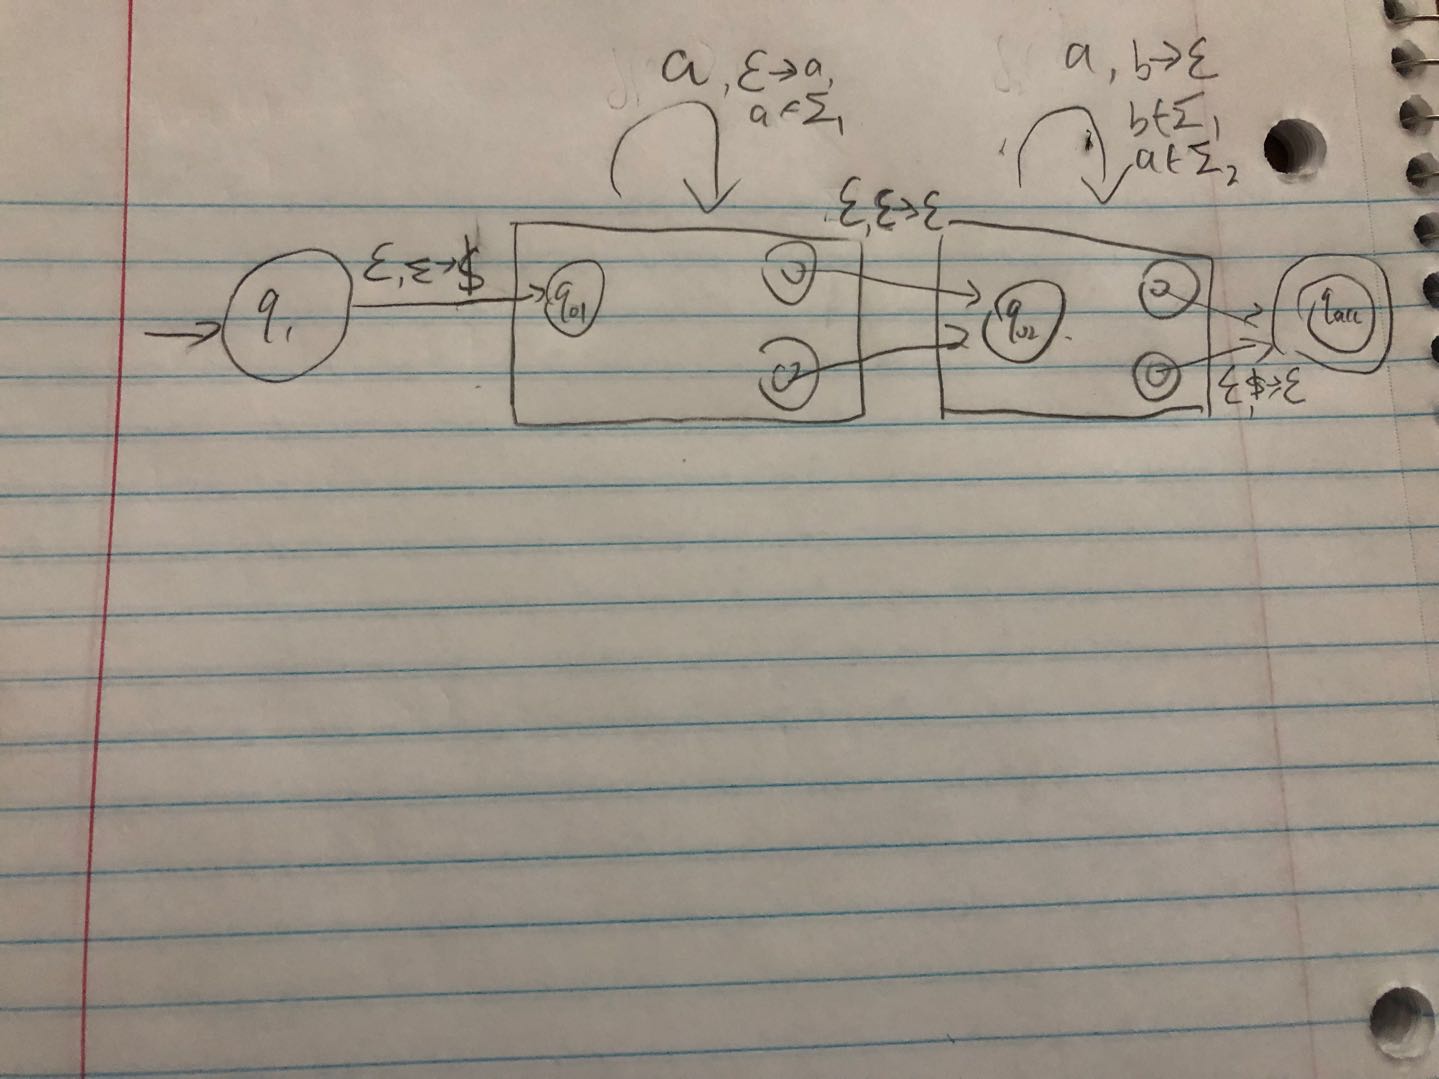 a, ε→a,
a∈Σ₁
a, b→ε
b∈Σ₁
a∈Σ₂
ε,ε→$
ε,ε→ε
q₁
q₀₁
q₀₂
qacc
ε,$→ε